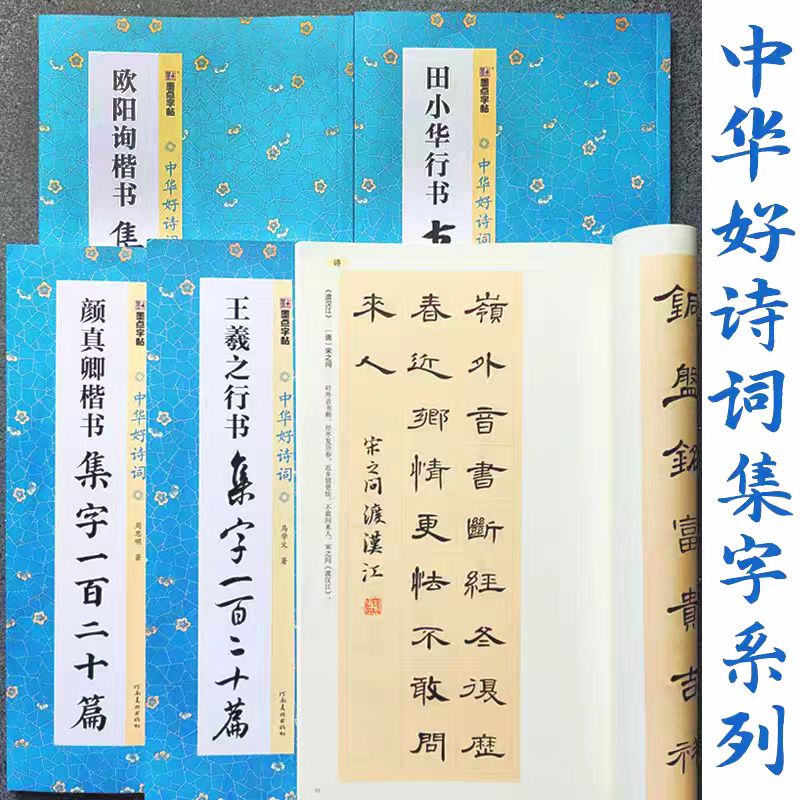 中华好诗词集字系列
墨点字帖
欧阳询楷书
集
中华好诗词
墨点字帖
田小华行书
中华好诗词
墨点字帖
颜真卿楷书
集字一百二十篇
中华好诗词
周思明 著
墨点字帖
王羲之行书
集字一百二十篇
中华好诗词
马学义 著
河南美术出版社
诗
《渡汉江》 〔唐〕宋之问
岭外音书断，经冬复历春。近乡情更怯，不敢问来人。宋之问《渡汉江》。
嶺外音書斷經冬復歷
春近鄉情更怯不敢問
來人
宋之问渡漢江
銅盤銘富貴吉祥